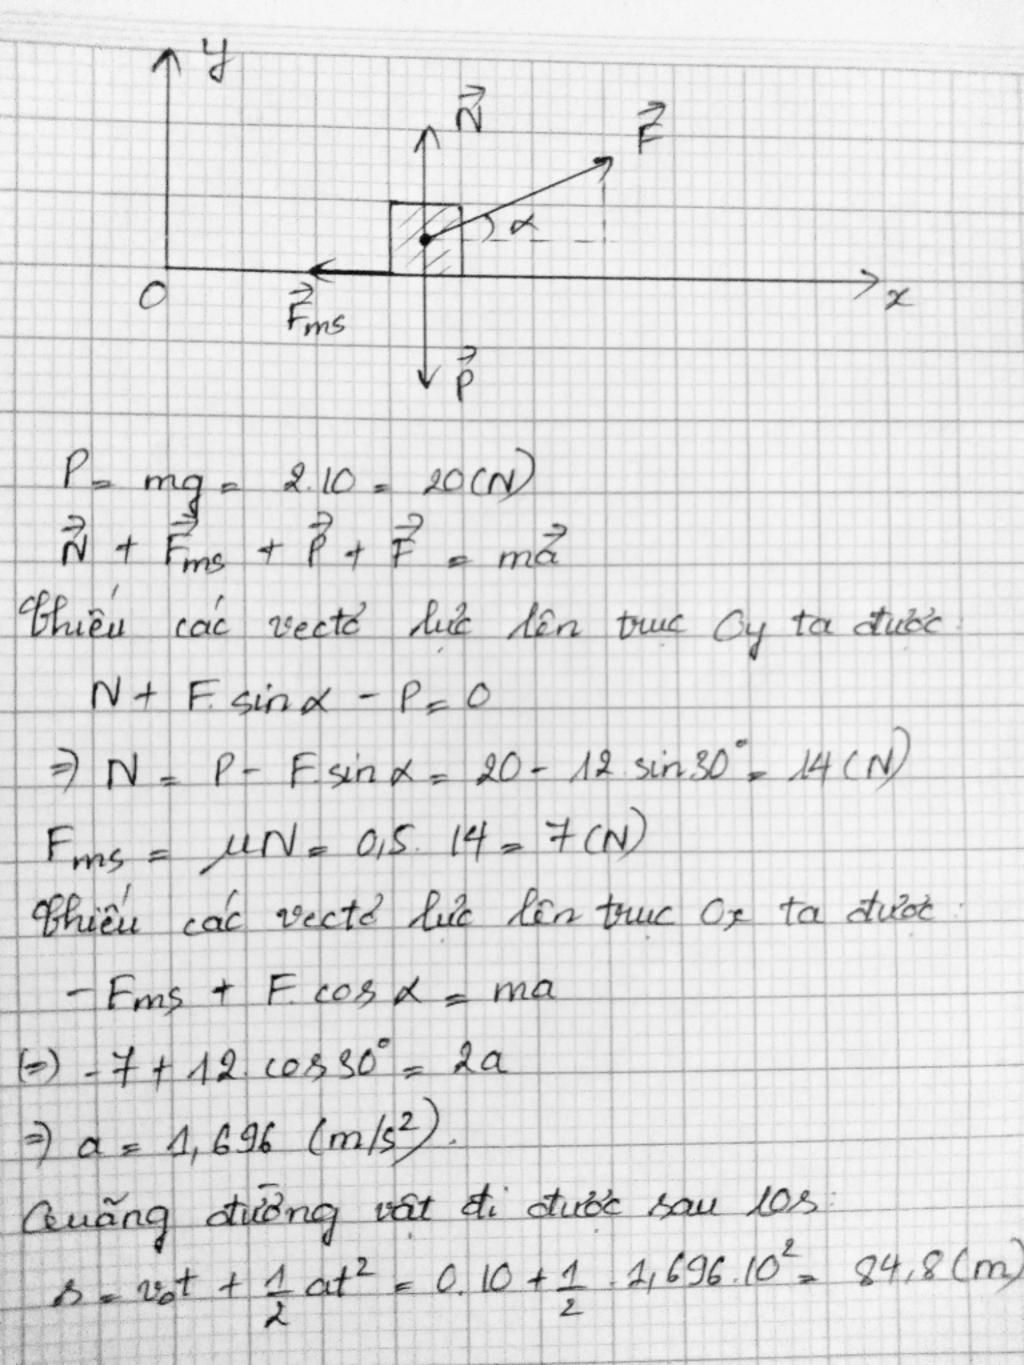 y
N⃗
F⃗
α
O
F⃗ms
x
P⃗
P = mg = 2.10 = 20(N)
N⃗ + F⃗ms + P⃗ + F⃗ = ma⃗
Chiếu các vectơ lực lên trục Oy ta được:
N + F.sinα - P = 0
⇒ N = P - F.sinα = 20 - 12.sin30° = 14(N)
Fms = μN = 0,5.14 = 7(N)
Chiếu các vectơ lực lên trục Ox ta được:
-Fms + F.cosα = ma
(=) -7 + 12.cos30° = 2a
⇒ a = 1,696 (m/s²).
Quãng đường vật đi được sau 10s:
s = v₀t + 1/2 at² = 0.10 + 1/2 .1,696.10² = 84,8(m)